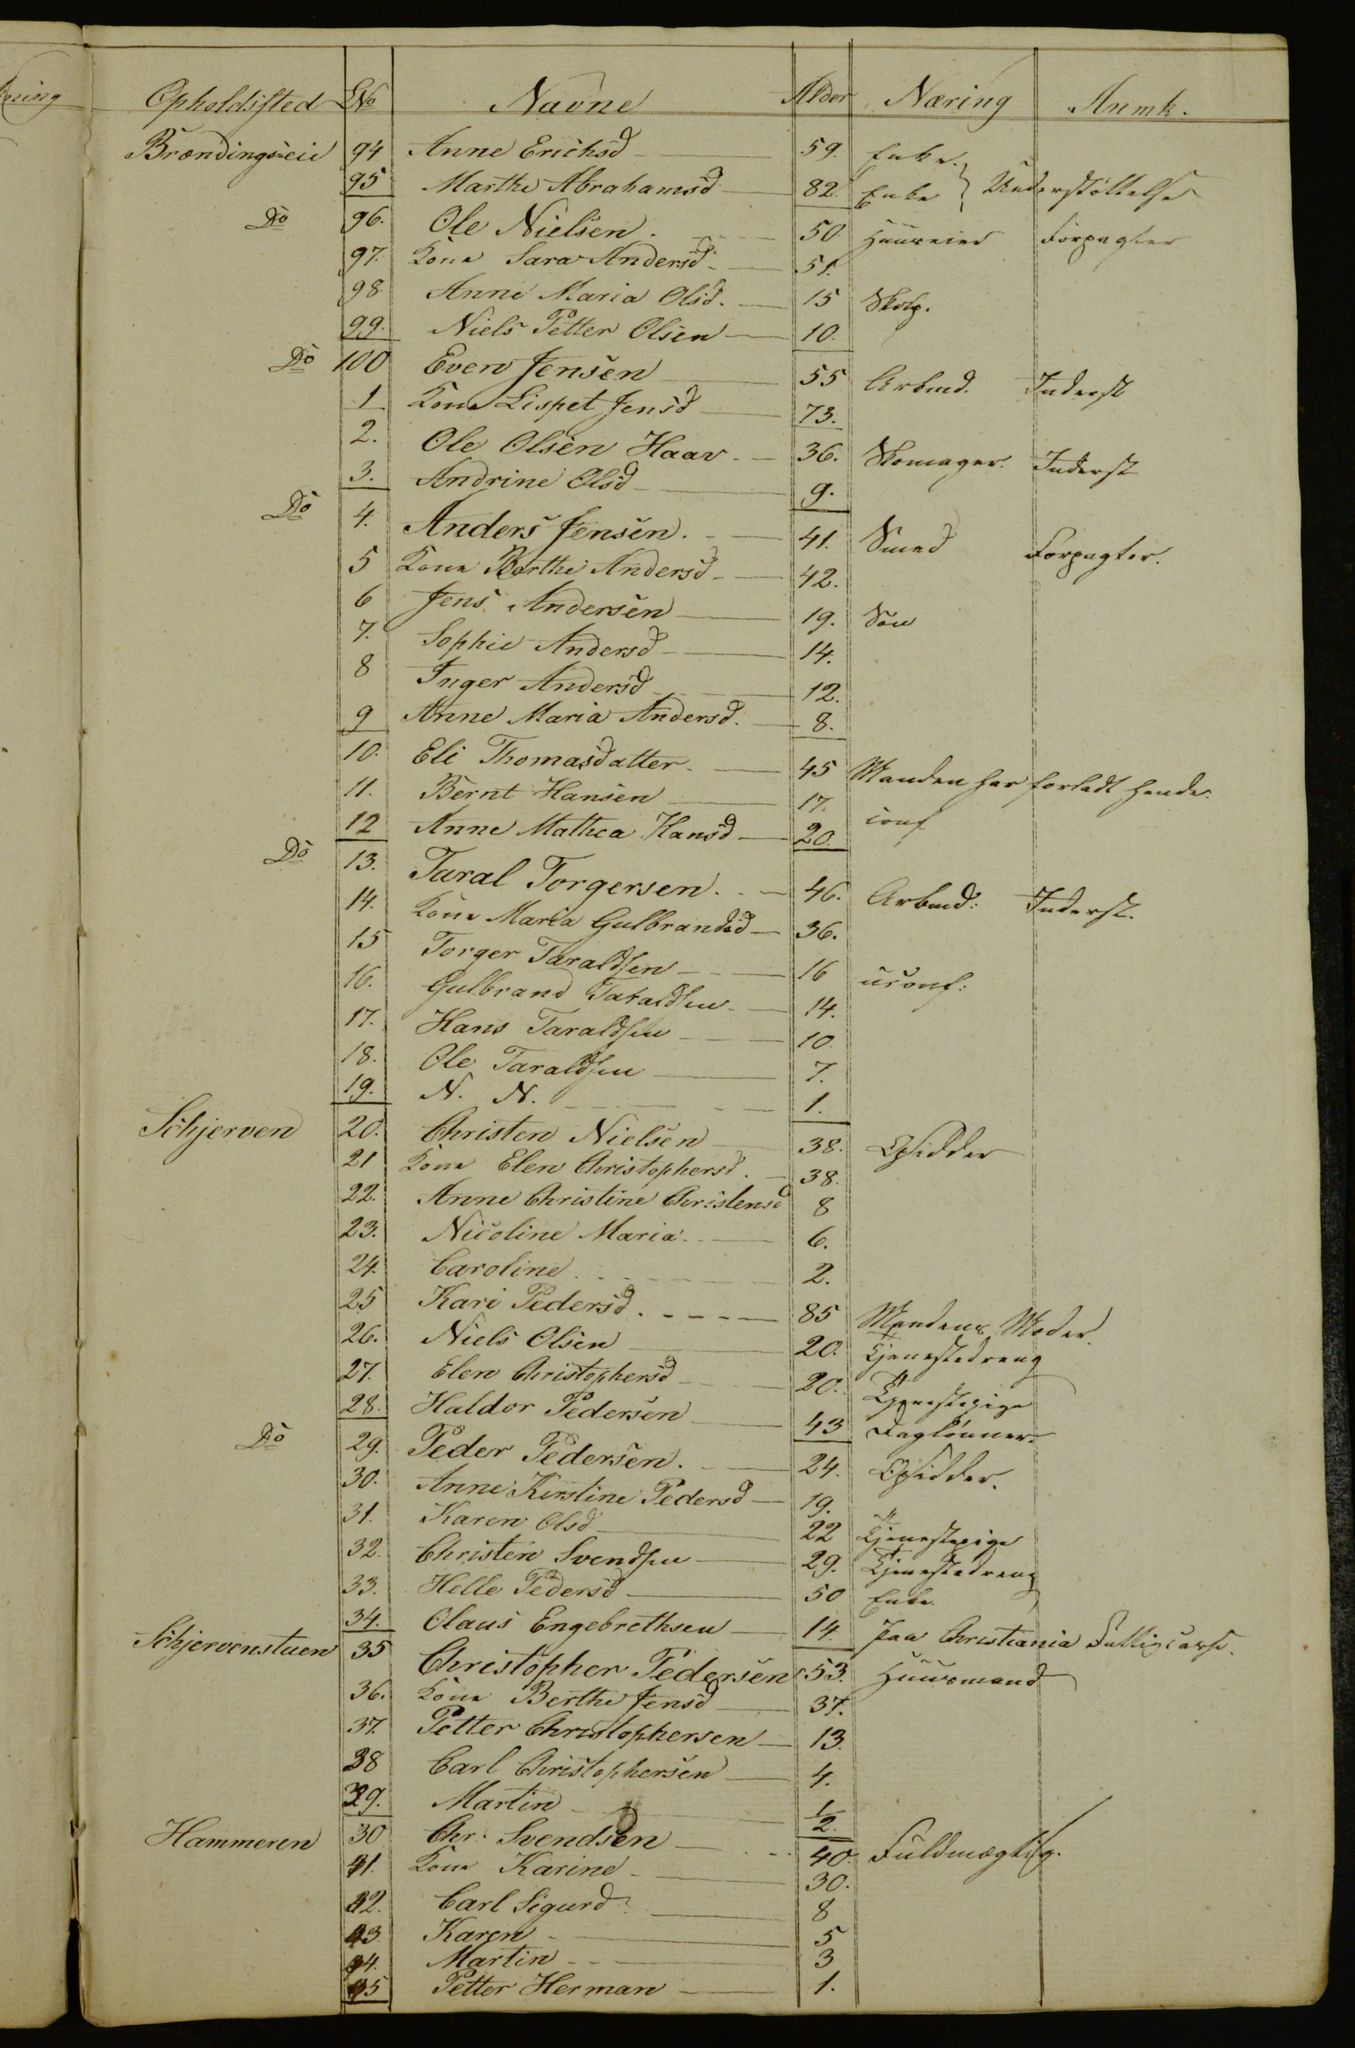 Opholdssted LNo Navne Alder Næring Anmk.
Brændingseie 94 Anne Erichsd 59. Enke.
95 Marthe Abrahamsd 82. Enke Understøttelse
Do 96. Ole Nielsen. 50. Huuseier Forpagter
97. Kone Sara Andersd. 51.
98. Anne Maria Olsd. 15
99. Niels Petter Olsen 10.
Do 100 Even Jensen 55 Arbmd. Inderst
1 Kone Lispet Jensd 73.
2. Ole Olsen Haav. 36. Skomager. Inderst
3. Andrine Olsd 9.
Do 4. Anders Jensen. 41. Smed Forpagter.
5 Kone Berthe Andersd 42.
6 Jens Andersen 19. Søn
7. Sophie Andersd 14.
8 Inger Andersd 12.
9 Anne Maria Andersd. 8.
10. Eli Thomasdatter. 45 Manden har forladt hende.
11. Bernt Hansen 17.
12 Anne Mathea Hansd 20. conf
Do 13. Taral Torgersen. 46. Arbmd: Inderst.
14. Kone Maria Gulbrandsd 36.
15 Torger Taraldsen 16 uconf:
16. Gulbrand Taraldsen 14.
17. Hans Taraldsen 10.
18. Ole Taraldsen 7.
19. N. N. 1.
Schjerven 20. Christen Nielsen 38. Opsidder
21 Kone Elen Christophersd. 38.
22. Anne Christine Christensd 8
23. Nicoline Maria 6.
24. Caroline 2.
25 Kari Pedersd. 85 Mandens Moder.
26. Niels Olsen 20. Tjenestedreng
27. Elen Christophersd 20. Tjenestepige
28. Haldor Pedersen 43 Daglønner
Do 29. Peder Pedersen. 24. Opsidder.
30. Anne Kirstine Pedersd 19.
31. Karen Olsd 22 Tjenestepige
32. Christen Svendsen 29. Tjenestedreng
33. Helle Pedersd 50 Enke.
34. Olaus Engebrethsen 14. paa Christiania Fattigcasse.
Schjervenstuen 35 Christopher Pedersen 53. Huusmand
36. Kone Berthe Jensd 37.
37. Petter Christophersen 13.
38 Carl Christophersen 4.
39. Martin 1/2.
Hammeren 30 Chr. Svendsen 40. Fuldmægtig.
41. Kone Karine 30.
42. Carl Sigurd 8
43 Karen 5
44. Martin 3
45 Petter Herman 1.